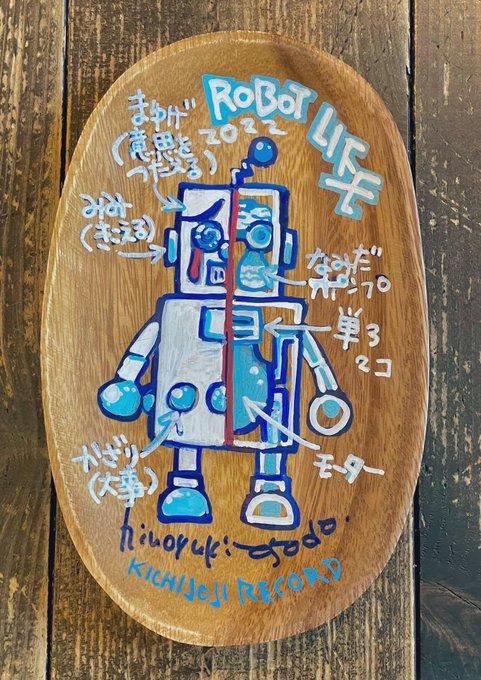 ROBOT LIFE
2022
まゆげ
(意思を
つたえる)
みみ
(きこえる)
なみだ
ポンプ
単3
2コ
モーター
かざり
(大事)
hiroyuki
KICHIJOJI RECORD